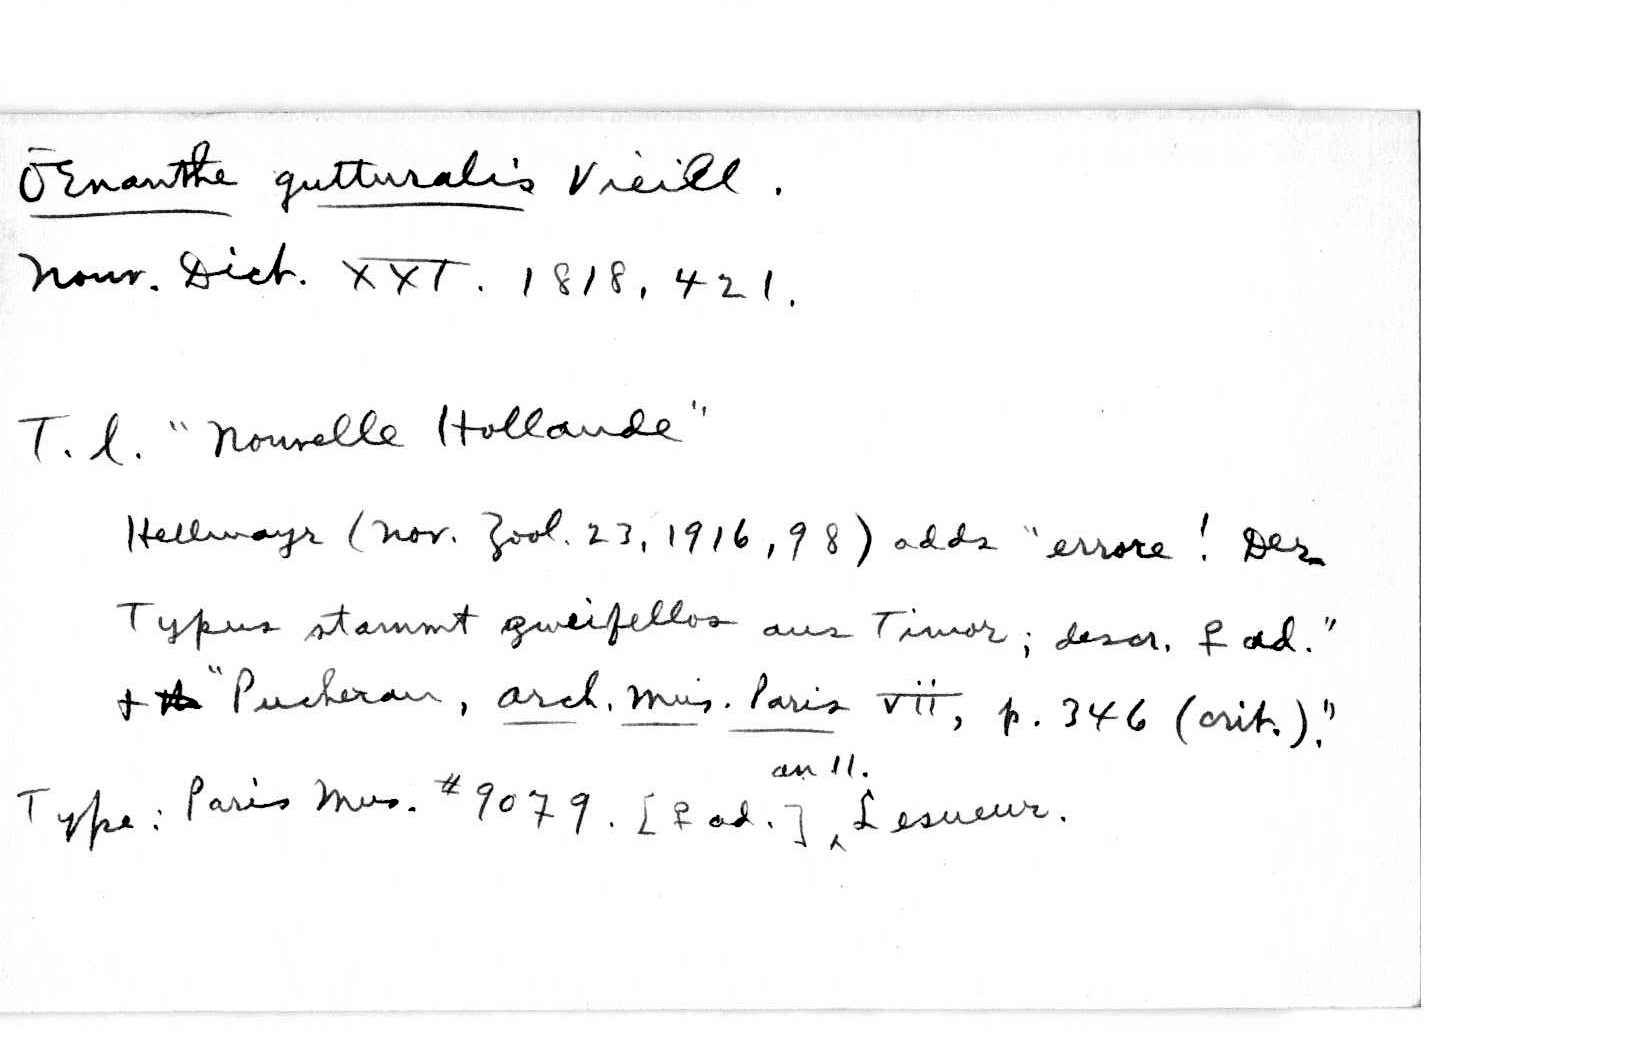 ŒEnanthe gutturalis Vieill.
Nouv. Dict. XXI. 1818, 421.
T. l. "Nouvelle Hollande"
Hellmayr (Nov. Zool. 23, 1916, 98) adds "errore! Der
Typus stammt zweifellos aus Timor; descr. ♀ ad."
+ "Pucheran, Arch. Mus. Paris VII, p. 346 (crit.)."
Type: Paris Mus. #9079. [♀ ad.] an 11. Lesueur.